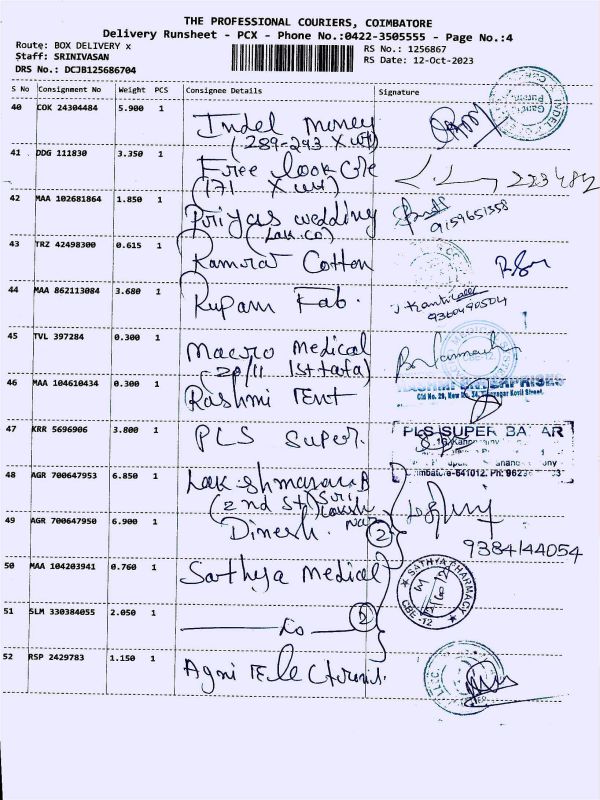 THE PROFESSIONAL COURIERS, COIMBATORE
Delivery Runsheet - PCX - Phone No.:0422-3505555 - Page No.:4
Route: BOX DELIVERY x
Staff: SRINIVASAN
DRS No.: DCJB125686704
RS No.: 1256867
RS Date: 12-Oct-2023
S No Consignment No Weight PCS Consignee Details Signature
40 COK 24304484 5.900 1 Indel money
(289-293 X
41 DDG 111830 3.350 1 Free look
(171 X 223482
42 MAA 102681864 1.850 1 Priyas wedding
9159651358
43 TRZ 42498300 0.615 1 Cotton
44 MAA 862113084 3.680 1 Rupam Fab.
9360490504
45 TVL 397284 0.300 1 Macro Medical
(20/11 1st
46 MAA 104610434 0.300 1 Rashmi Ent
RASHMI ENTERPRISES
Old No. 29, New No.
47 KRR 5696906 3.800 1 PLS super.
PLS SUPER BAZAAR
-641012. Ph:
48 AGR 700647953 6.850 1
(2nd St) Sri
49 AGR 700647950 6.900 1 Dinesh. 2
9384144054
50 MAA 104203941 0.760 1 Sathya Medical
SATHYA PHARMACY
CBE-12
51 SLM 330384055 2.050 1 Do 2
52 RSP 2429783 1.150 1 Agni